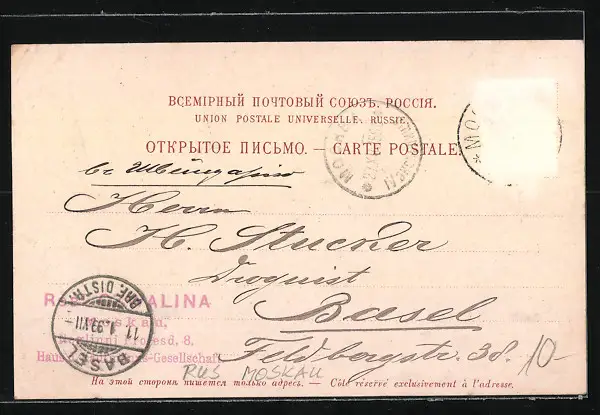 ВСЕМІРНЫЙ ПОЧТОВЫЙ СОЮЗЪ. РОССІЯ.
UNION POSTALE UNIVERSELLE. RUSSIE.
ОТКРЫТОЕ ПИСЬМО. — CARTE POSTALE.
МОСКВА
МО
въ Швейцарію
Herrn
H. Stuckner
Droguist
Basel
Feldbergstr. 38.
10-
R ALINA
Moskau,
d, 8.
Haus -Gesellschaft
BASEL
BRF. DISTR.
11
99.VII
RUS MOSKAU
На этой сторонѣ пишется только адресъ. — Côté réservé exclusivement à l'adresse.